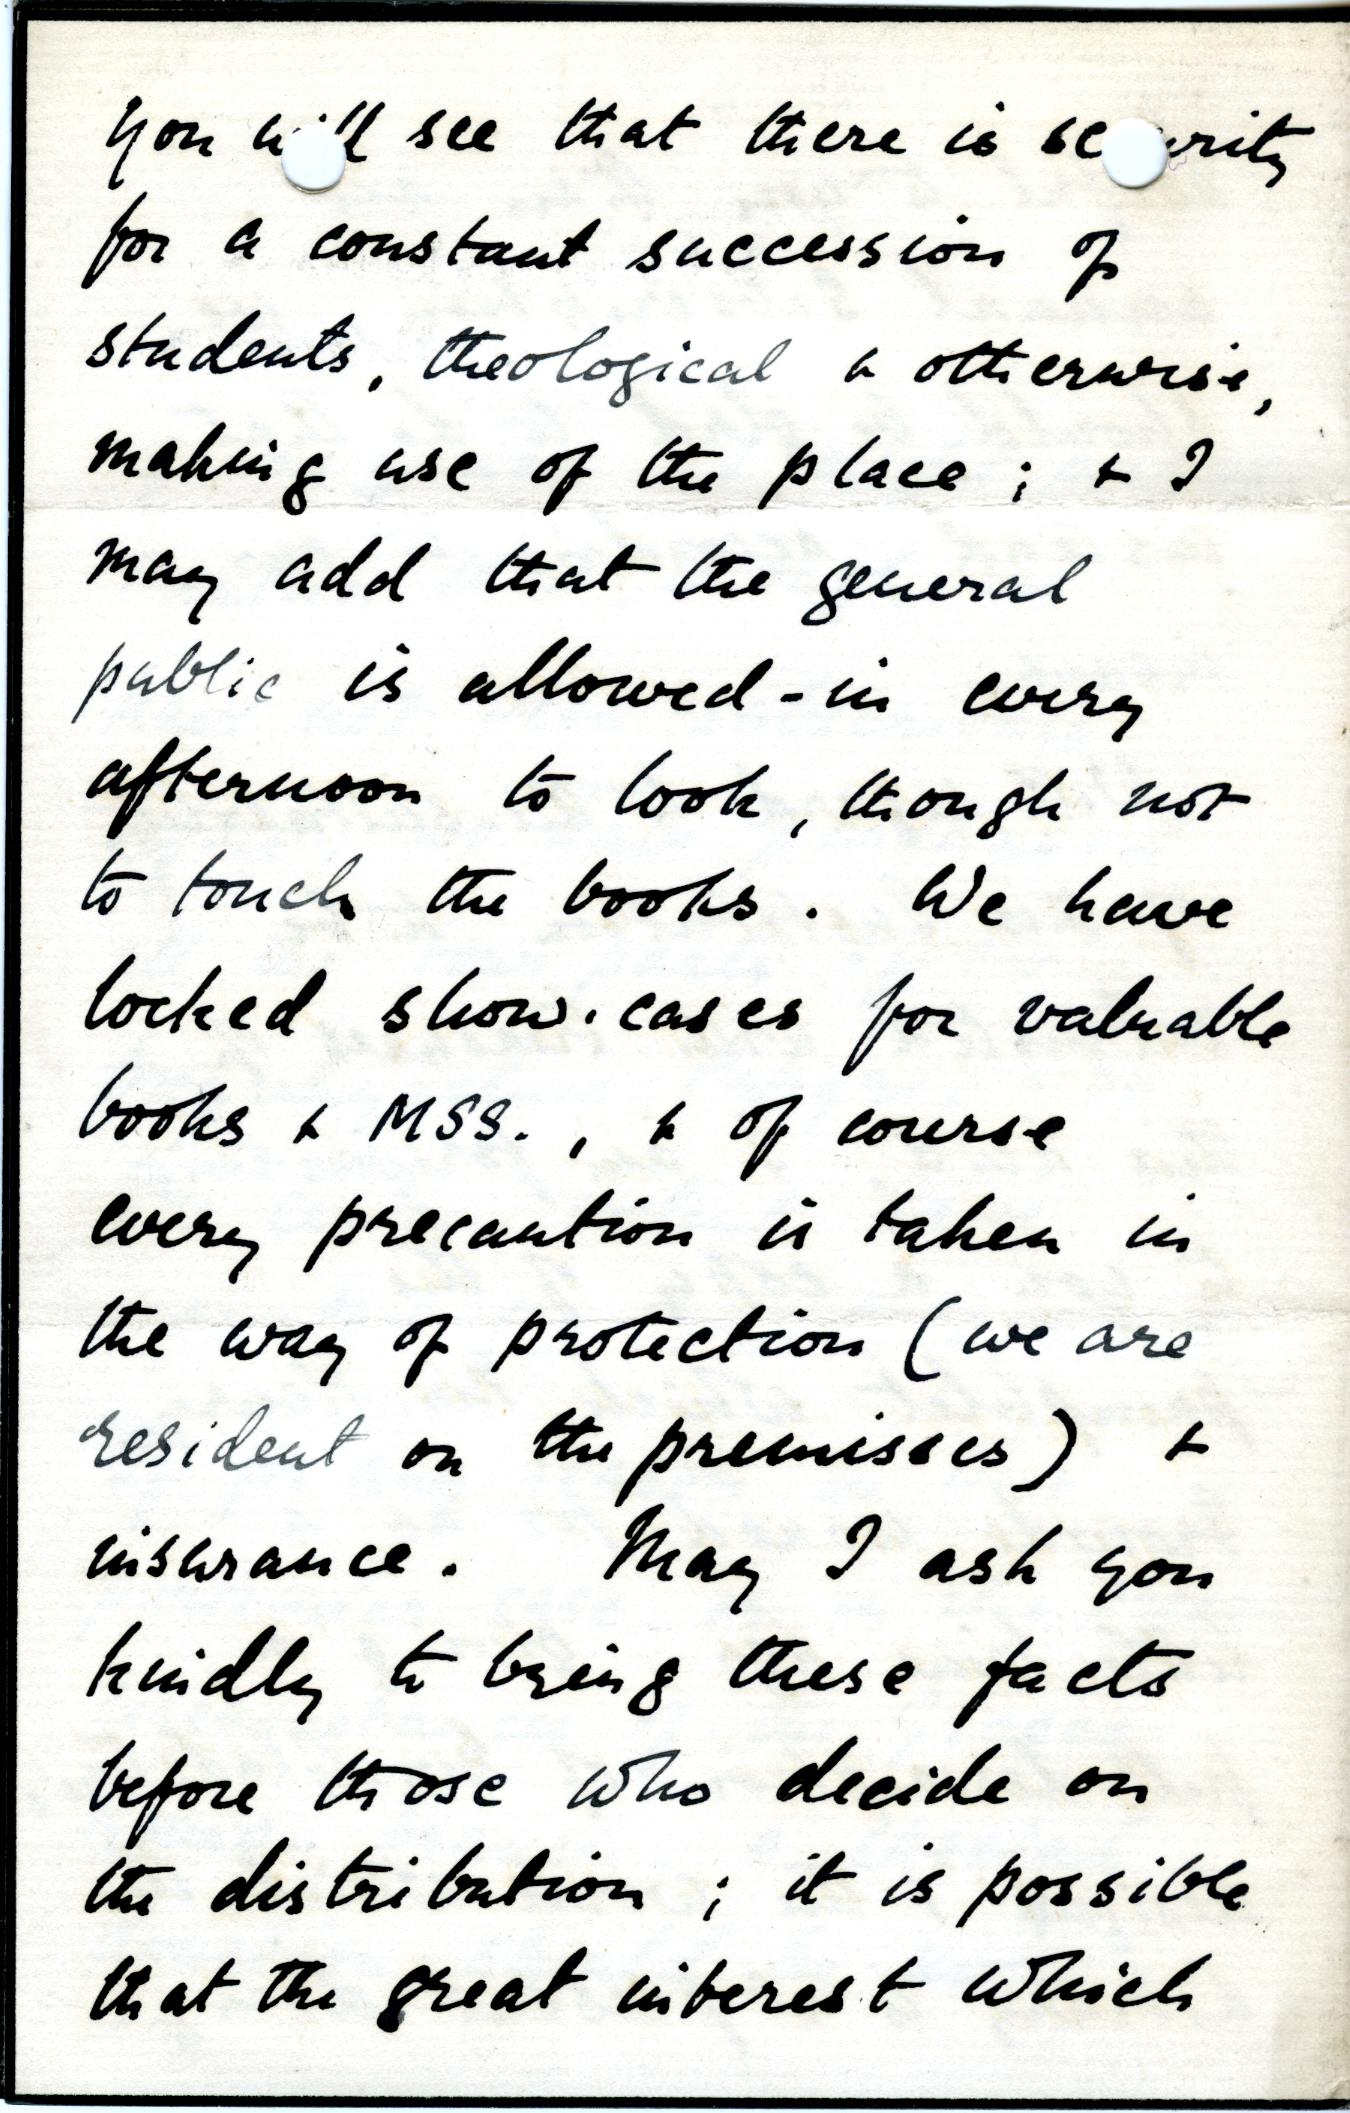 you will see that there is security
for a constant succession of
students, theological & otherwise,
making use of the place; & I
may add that the general
public is allowed-in every
afternoon to look, though not
to touch the books. We have
locked show-cases for valuable
books & MSS., & of course
every precaution is taken in
the way of protection (we are
resident on the premises) &
insurance. May I ask you
kindly to bring these facts
before those who decide on
the distribution; it is possible
that the great interest which